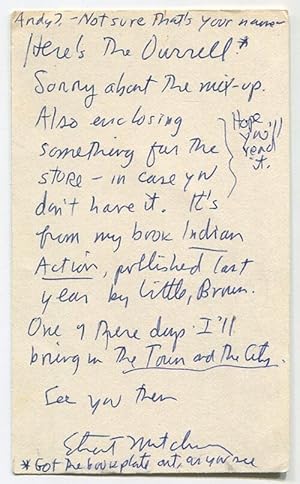 Andy? - Not sure that's your name -
Here's the Durrell*
Sorry about the mix-up.
Also enclosing
something for the
store - in case you
don't have it. It's
from my book Indian
Action, published last
year by Little, Brown.
One of these days I'll
bring in The Town and the City.
See you then
* Got the bookplate out, as you see
Hope
you'll
read
it.